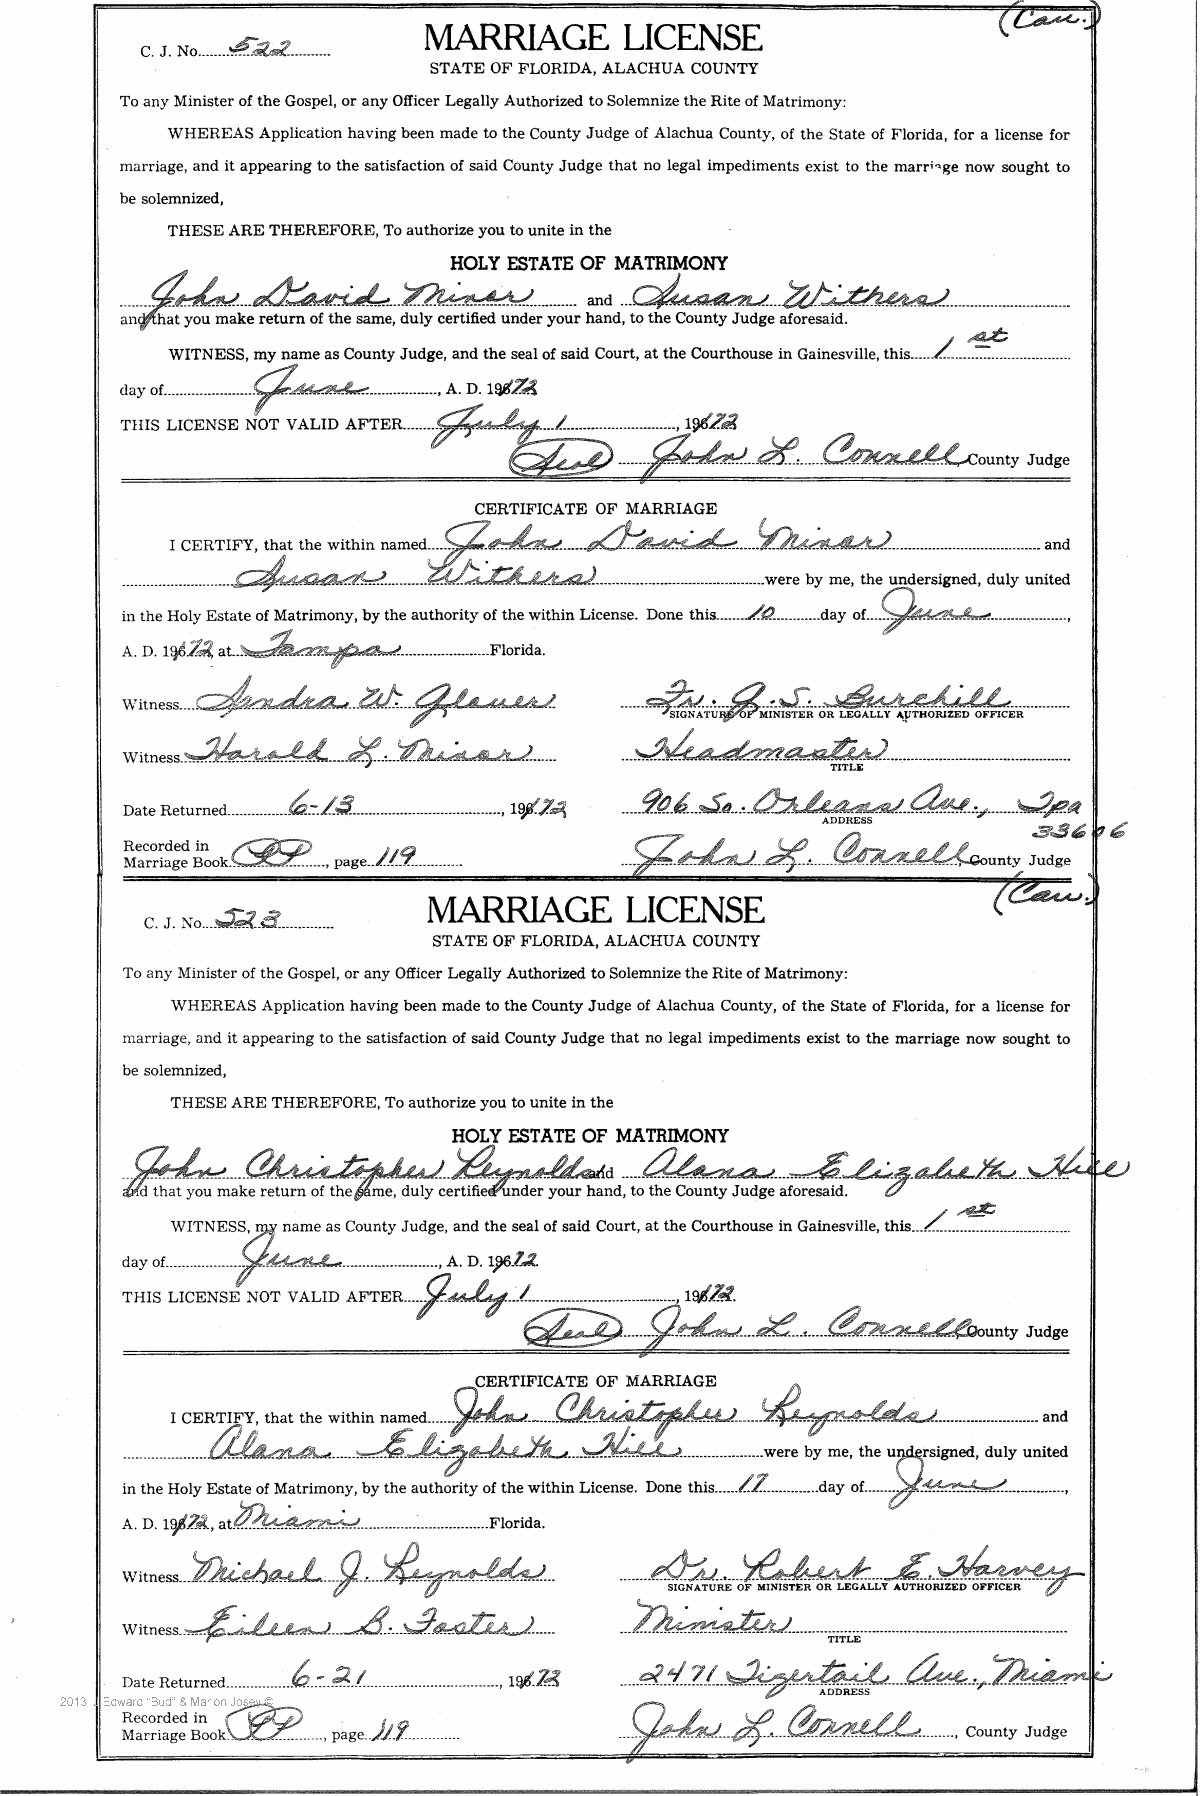 (Cau.)
C. J. No. 522 MARRIAGE LICENSE
STATE OF FLORIDA, ALACHUA COUNTY
To any Minister of the Gospel, or any Officer Legally Authorized to Solemnize the Rite of Matrimony:
WHEREAS Application having been made to the County Judge of Alachua County, of the State of Florida, for a license for
marriage, and it appearing to the satisfaction of said County Judge that no legal impediments exist to the marriage now sought to
be solemnized,
THESE ARE THEREFORE, To authorize you to unite in the
HOLY ESTATE OF MATRIMONY
John David Minor and Susan Withers
and that you make return of the same, duly certified under your hand, to the County Judge aforesaid.
WITNESS, my name as County Judge, and the seal of said Court, at the Courthouse in Gainesville, this 1st
day of June, A. D. 1972
THIS LICENSE NOT VALID AFTER July 1, 1972
(Seal) John L. Connell County Judge
CERTIFICATE OF MARRIAGE
I CERTIFY, that the within named John David Minor and
Susan Withers were by me, the undersigned, duly united
in the Holy Estate of Matrimony, by the authority of the within License. Done this 10 day of June,
A. D. 1972, at Tampa Florida.
Witness Sandra W. Glover Fr. J. S. Burchill
SIGNATURE OF MINISTER OR LEGALLY AUTHORIZED OFFICER
Witness Harold L. Minor Headmaster
TITLE
Date Returned 6-13, 1972 906 So. Orleans Ave., Tpa
ADDRESS 33606
Recorded in
Marriage Book PP, page 119 John L. Connell, County Judge
(Cau.)
C. J. No. 523 MARRIAGE LICENSE
STATE OF FLORIDA, ALACHUA COUNTY
To any Minister of the Gospel, or any Officer Legally Authorized to Solemnize the Rite of Matrimony:
WHEREAS Application having been made to the County Judge of Alachua County, of the State of Florida, for a license for
marriage, and it appearing to the satisfaction of said County Judge that no legal impediments exist to the marriage now sought to
be solemnized,
THESE ARE THEREFORE, To authorize you to unite in the
HOLY ESTATE OF MATRIMONY
John Christopher Reynolds and Alana Elizabeth Hill
and that you make return of the same, duly certified under your hand, to the County Judge aforesaid.
WITNESS, my name as County Judge, and the seal of said Court, at the Courthouse in Gainesville, this 1st
day of June, A. D. 1972
THIS LICENSE NOT VALID AFTER July 1, 1972.
(Seal) John L. Connell County Judge
CERTIFICATE OF MARRIAGE
I CERTIFY, that the within named John Christopher Reynolds and
Alana Elizabeth Hill were by me, the undersigned, duly united
in the Holy Estate of Matrimony, by the authority of the within License. Done this 17 day of June,
A. D. 1972, at Miami Florida.
Witness Michael J. Reynolds Dr. Robert E. Harvey
SIGNATURE OF MINISTER OR LEGALLY AUTHORIZED OFFICER
Witness Eileen B. Foster Minister
TITLE
Date Returned 6-21, 1972 2471 Tigertail Ave., Miami
ADDRESS
2013 J Edward "Bud" & Marion Josey ©
Recorded in
Marriage Book PP, page 119 John L. Connell, County Judge